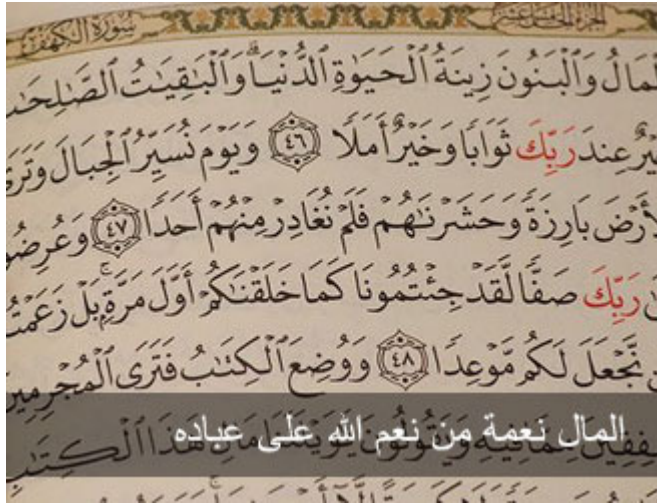 سورة الكهف الجزء الخامس عشر
لمَالُ وَالْبَنُونَ زِينَةُ الْحَيَوٰةِ الدُّنْيَا ۖ وَالْبَٰقِيَٰتُ الصَّٰلِحَٰتُ
يْرٌ عِندَ رَبِّكَ ثَوَابًا وَخَيْرٌ أَمَلًا ٤٦ وَيَوْمَ نُسَيِّرُ الْجِبَالَ وَتَرَى
لْأَرْضَ بَارِزَةً وَحَشَرْنَٰهُمْ فَلَمْ نُغَادِرْ مِنْهُمْ أَحَدًا ٤٧ وَعُرِضُو
رَبِّكَ صَفًّا لَّقَدْ جِئْتُمُونَا كَمَا خَلَقْنَٰكُمْ أَوَّلَ مَرَّةٍ ۚ بَلْ زَعَمْتُ
نَّجْعَلَ لَكُم مَّوْعِدًا ٤٨ وَوُضِعَ الْكِتَٰبُ فَتَرَى الْمُجْرِمِينَ
فِقِينَ مِمَّا فِيهِ وَيَقُولُونَ يَٰوَيْلَتَنَا مَالِ هَٰذَا الْكِتَٰبِ
المال نعمة من نعم الله على عباده